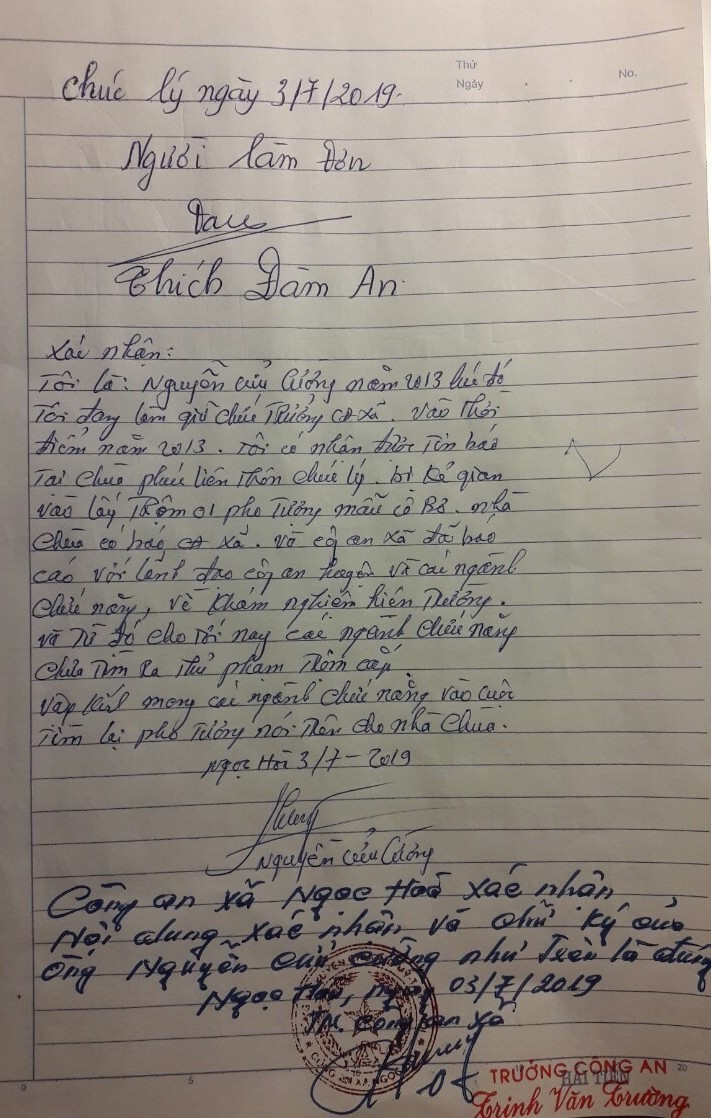 Thứ
Ngày
No.
Chúc lý ngày 3/7/2019.
Người làm Đơn
Thích Đàm An
Xác nhận:
Tôi là: Nguyễn Cửu Cương năm 2013 lúc đó
Tôi đang làm giữ chức Trưởng CA xã. Vào Thời
điểm năm 2013. Tôi có nhận được Tin báo
Tại Chùa phúc liên Thôn Chúc lý. bị kẻ gian
vào lấy Trộm 01 pho Tượng mẫu cô Bơ. nhà
Chùa có báo CA xã. và công an xã đã báo
cáo với lãnh đạo công an huyện và các ngành
Chức năng, về Khám nghiệm hiện Trường.
và Từ đó cho Tới nay các ngành Chức năng
Chưa Tìm Ra Thủ phạm Trộm cắp
vậy kính mong các ngành chức năng vào cuộc
Tìm lại pho Tượng nói Trên cho nhà Chùa.
Ngọc Hòa 3/7-2019
Nguyễn Cửu Cương
Công an xã Ngọc Hoà xác nhận
Nội dung xác nhận và chữ ký của
Ông Nguyễn Cửu Cương như Trên là đúng
Ngọc Hoà, ngày 03/7/2019
TM. Công an xã
TRƯỞNG CÔNG AN
HẢI TIẾN
Trịnh Văn Trường
0
5
20